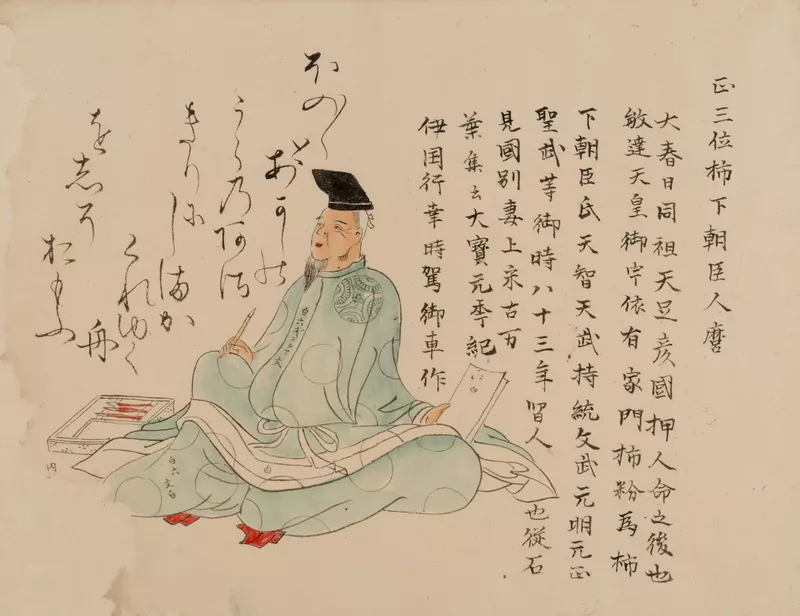 正三位柿下朝臣人麿
大春日同祖天足彦國押人命之後也
敏達天皇御宇依有家門柿粉爲柿
下朝臣氏天智天武持統文武元明元正
聖武等御時八十三年習人也従石
見國別妻上来古万
葉集云大寳元季紀
伊国行幸時駕御車作
ほの〳〵と
あかしの
うらのあさ
きりにしまか
くれゆく舟
を志そ
おもふ
白
白六文白
内